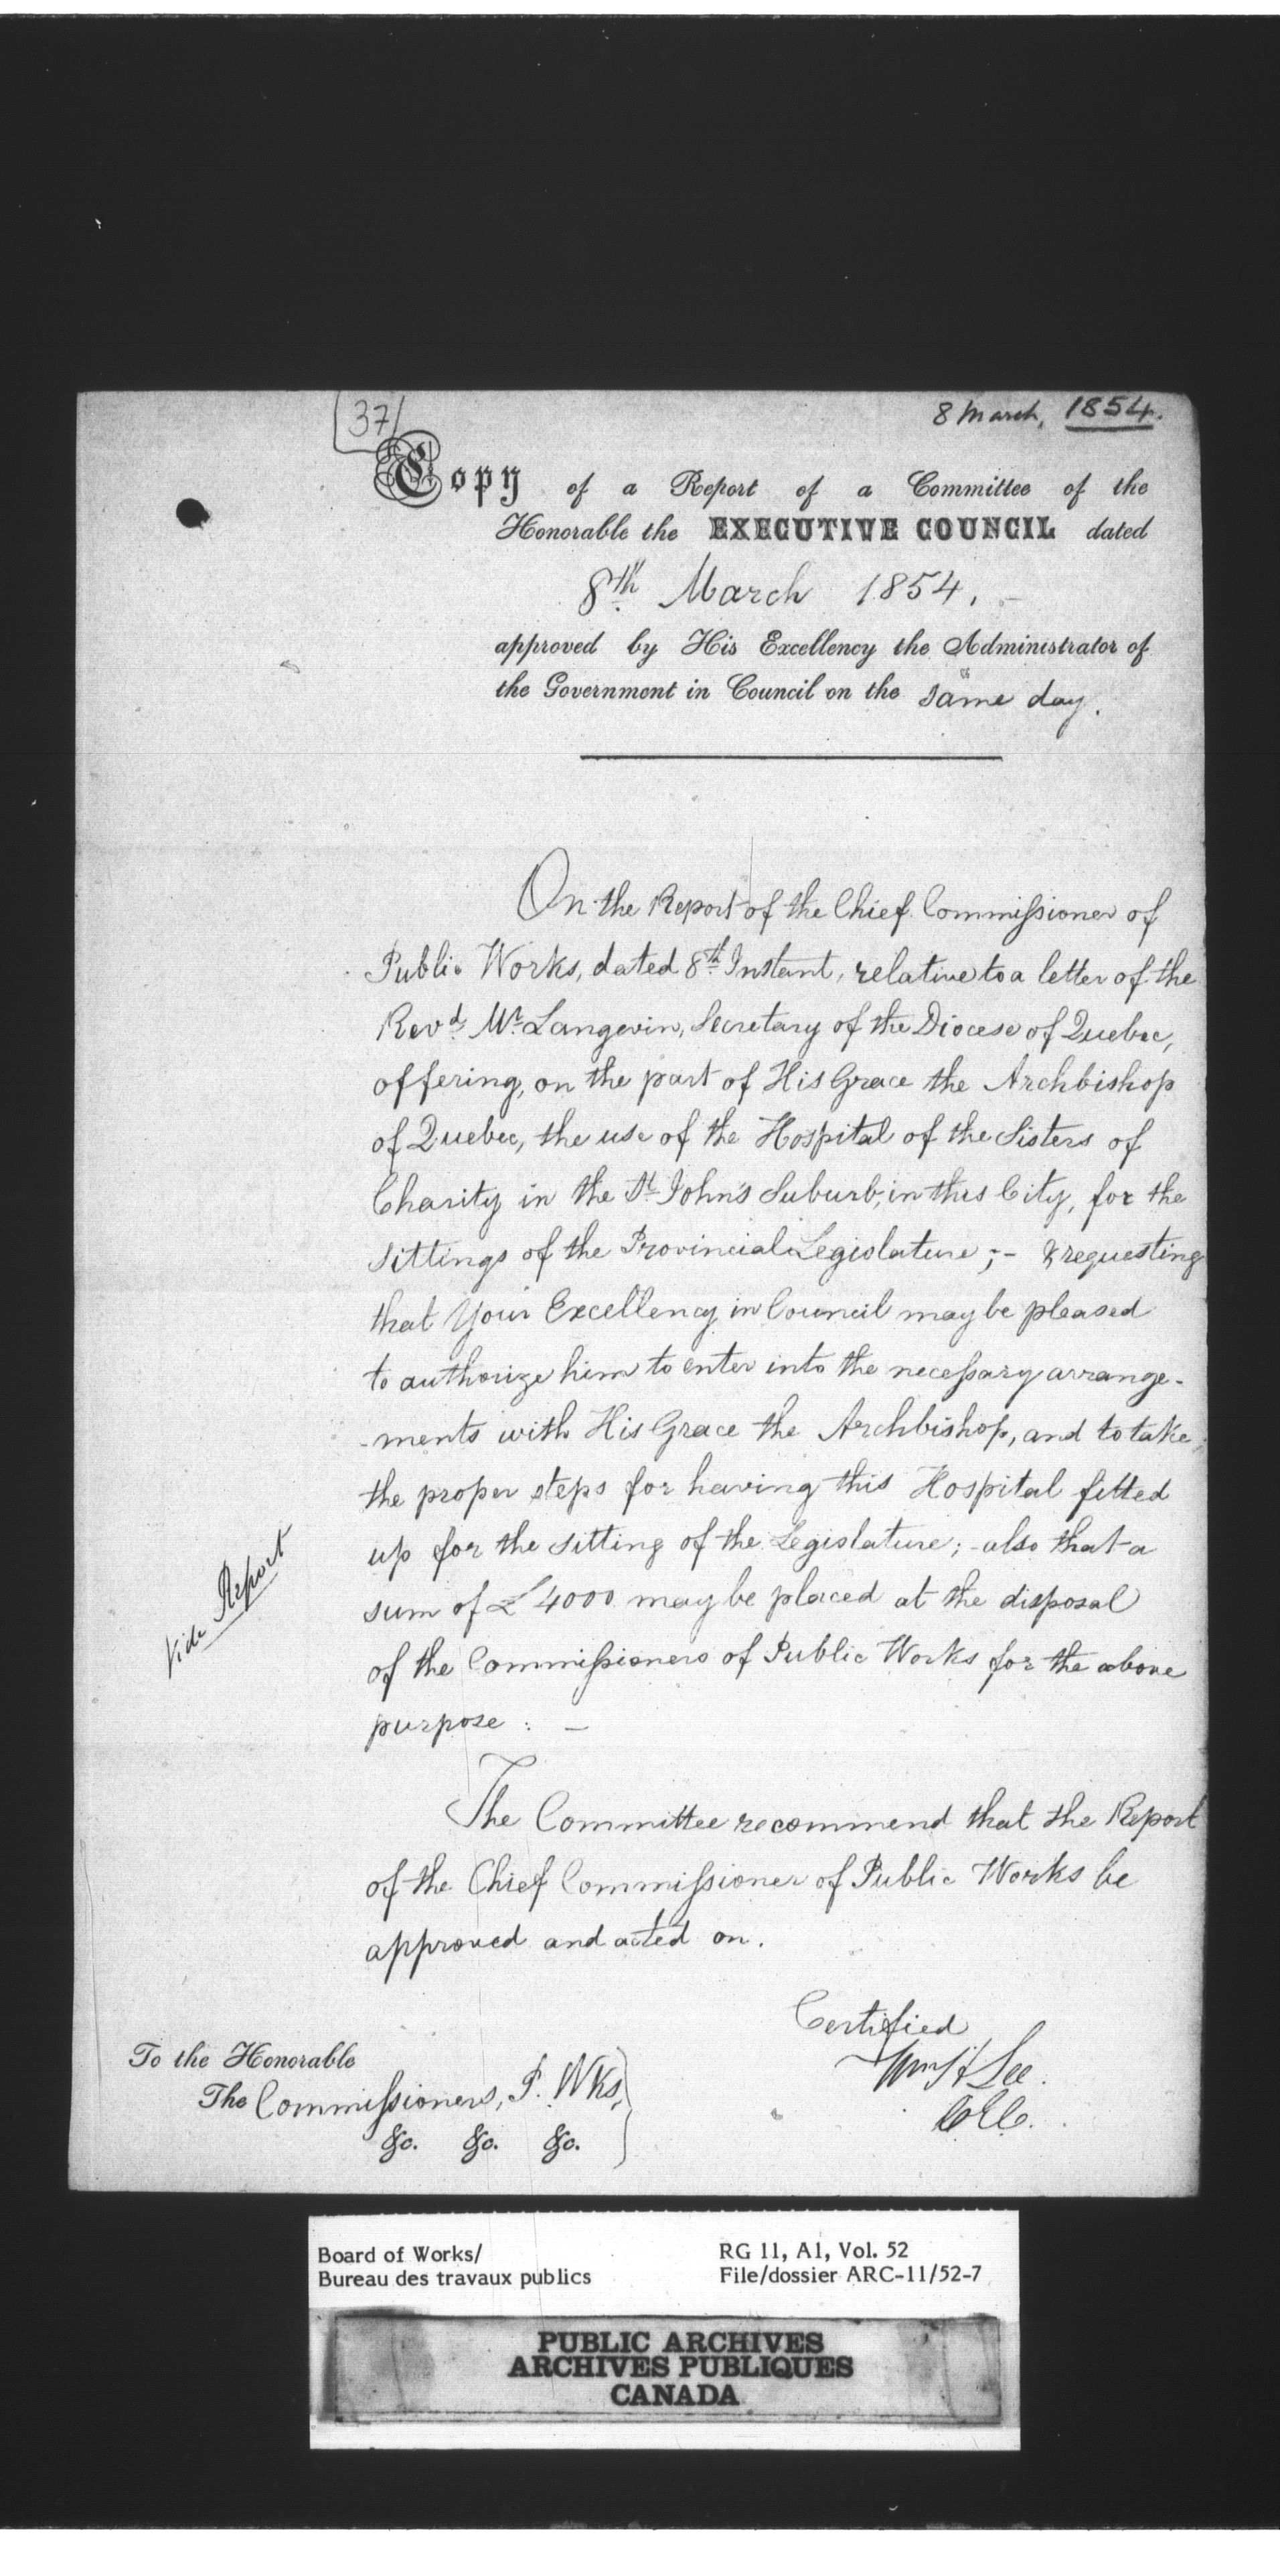 37
8 March, 1854.
Copy of a Report of a Committee of the
Honorable the EXECUTIVE COUNCIL dated
8th March 1854,
approved by His Excellency the Administrator of
the Government in Council on the same day.
On the Report of the Chief Commissioner of
Public Works, dated 8th Instant, relative to a letter of the
Revd. Mr. Langevin, Secretary of the Diocese of Quebec,
offering, on the part of His Grace the Archbishop
of Quebec, the use of the Hospital of the Sisters of
Charity in the St. John's Suburb, in this City, for the
sittings of the Provincial Legislature; - & requesting
that Your Excellency in Council may be pleased
to authorize him to enter into the necessary arrange-
-ments with His Grace the Archbishop, and to take
the proper steps for having this Hospital fitted
up for the sitting of the Legislature; - also that a
sum of £4000 may be placed at the disposal
of the Commissioners of Public Works for the above
purpose : —
Vide Report
The Committee recommend that the Report
of the Chief Commissioner of Public Works be
approved and acted on.
Certified
Wm H Lee.
C.E.C.
To the Honorable
The Commissioners, P. Wks,
&c. &c. &c.
Board of Works/
Bureau des travaux publics
RG 11, A1, Vol. 52
File/dossier ARC-11/52-7
PUBLIC ARCHIVES
ARCHIVES PUBLIQUES
CANADA